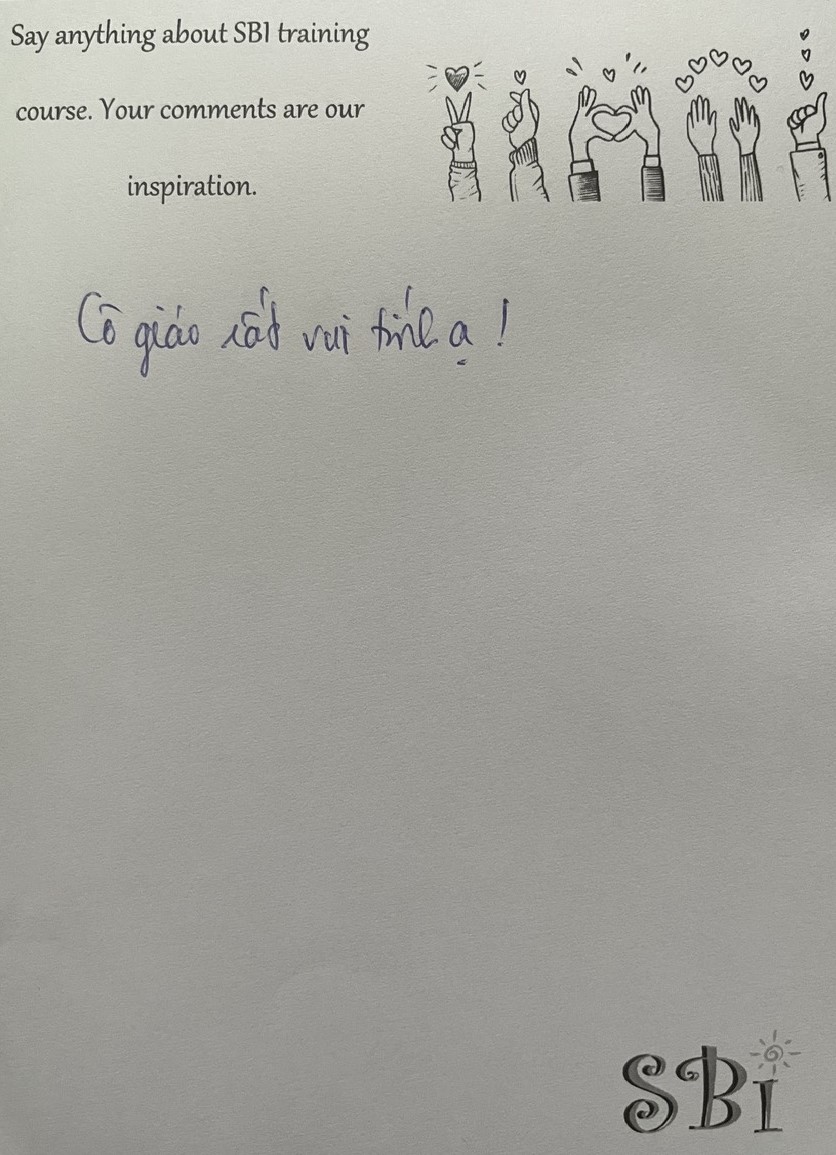 Say anything about SBI training
course. Your comments are our
inspiration.
Cô giáo rất vui tính ạ !
SBI